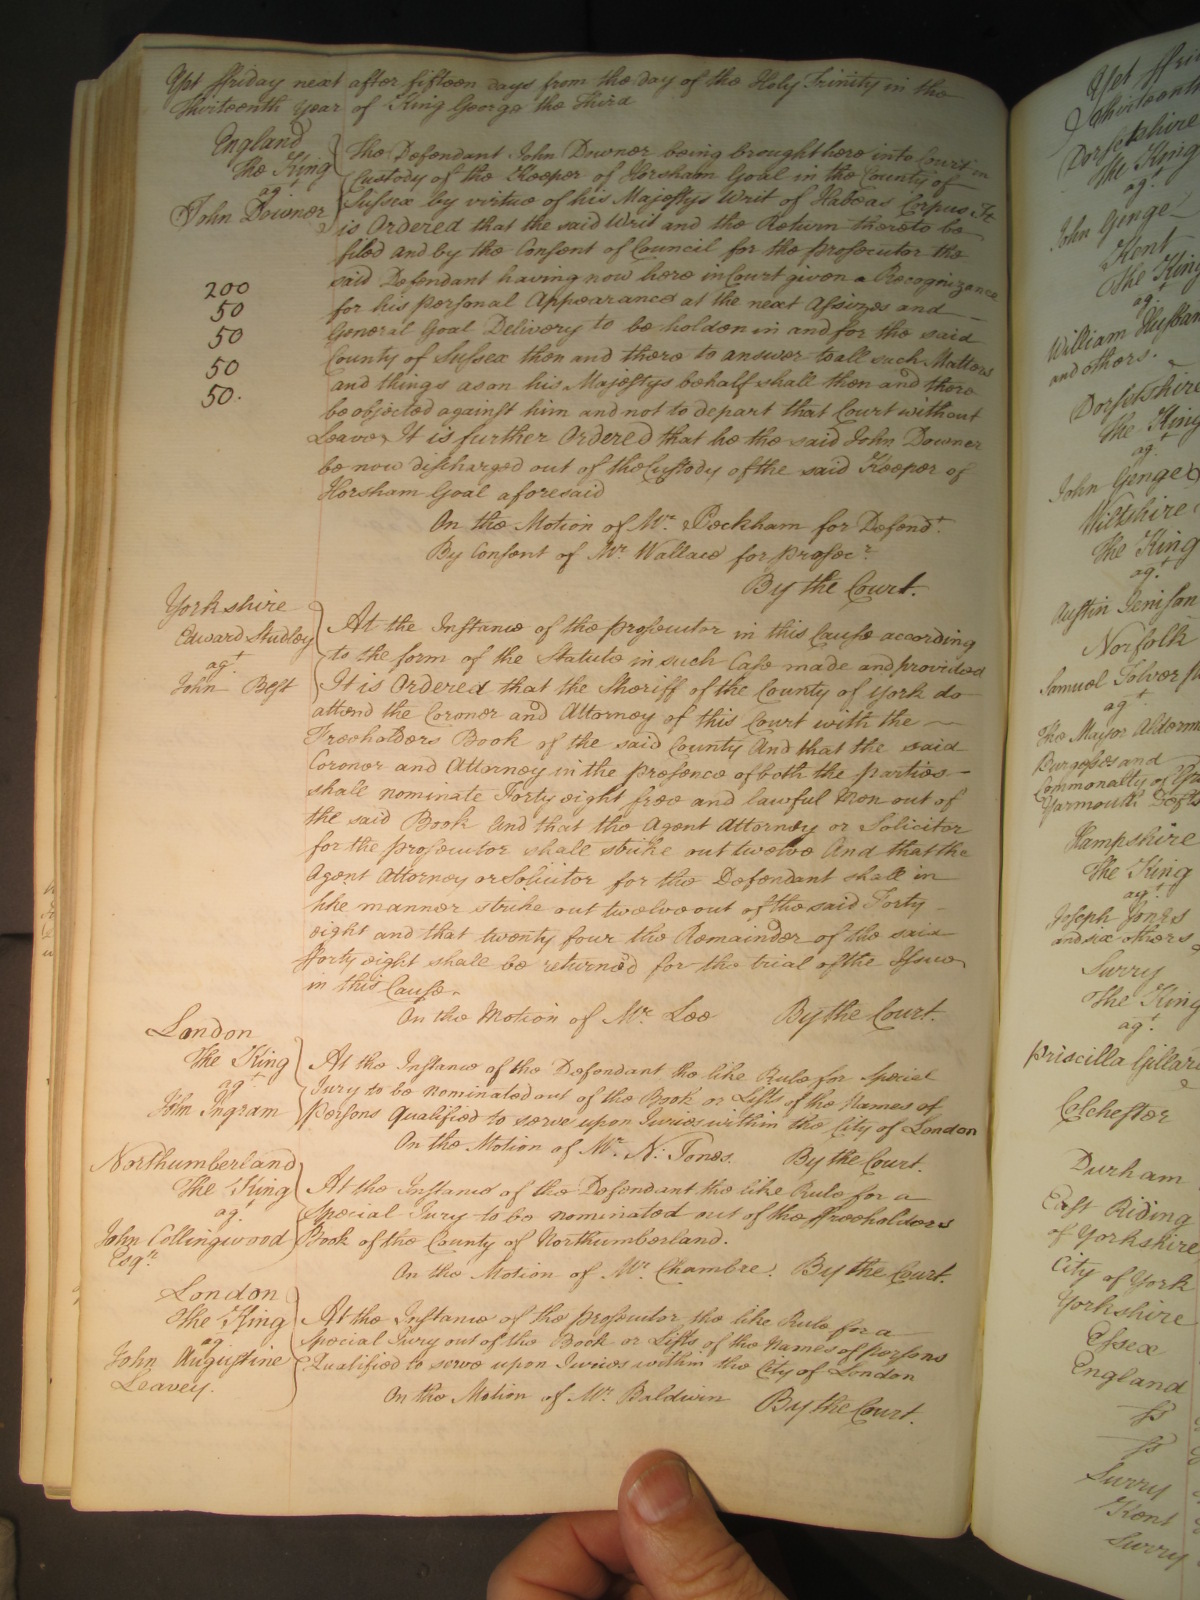 Yet ffriday next after fifteen days from the day of the Holy Trinity in the
Thirteenth Year of King George the Third
England
The King
agt
John Downer
The Defendant John Downer being brought here into Court in
Custody of the Keeper of Horsham Goal in the County of
Sussex by virtue of his Majestys Writ of Habeas Corpus It
is Ordered that the said Writ and the Return thereto be
filed and by the Consent of Council for the prosecutor the
said Defendant having now here in Court given a Recognizance
for his personal Appearance at the next Assizes and
General Goal Delivery to be holden in and for the said
County of Sussex then and there to answer to all such Matters
and things as on his Majestys behalf shall then and there
be objected against him and not to depart that Court without
Leave, It is further Ordered that he the said John Downer
be now discharged out of the Custody of the said Keeper of
Horsham Goal aforesaid
200
50
50
50
50.
On the Motion of Mr. Peckham for Defendt
By Consent of Mr. Wallace for prosecr
By the Court.
Yorkshire
Edward Studley
agt
John Best
At the Instance of the prosecutor in this Cause according
to the form of the Statute in such Case made and provided
It is Ordered that the Sheriff of the County of York do
attend the Coroner and Attorney of this Court with the
Freeholders Book of the said County And that the said
Coroner and Attorney in the presence of both the parties
shall nominate Forty eight free and lawful Men out of
the said Book And that the Agent Attorney or Solicitor
for the prosecutor shall strike out twelve And that the
Agent Attorney or Solicitor for the Defendant shall in
like manner strike out twelve out of the said Forty
eight and that twenty four the Remainder of the said
fforty eight shall be returned for the trial of the Issue
in this Cause.
On the Motion of Mr. Lee By the Court.
London
The King
agt
John Ingram
At the Instance of the Defendant the like Rule for Special
Jury to be nominated out of the Book or Lists of the Names of
persons Qualified to serve upon Juries within the City of London
On the Motion of Mr. N: Jones. By the Court.
Northumberland
The King
agt
John Collingwood
Esqr.
At the Instance of the Defendant the like Rule for a
Special Jury to be nominated out of the ffreeholders
Book of the County of Northumberland.
On the Motion of Mr. Chambre. By the Court.
London
The King
ag
John Augustine
Leavey.
At the Instance of the prosecutor the like Rule for a
Special Jury out of the Book or Lists of the Names of persons
Qualified to serve upon Juries within the City of London
On the Motion of Mr. Baldwin By the Court.
Yet
Thirteenth
Dorsetshire
The King
agt
John Genge
Kent
The King
agt
William
and others.
Dorsetshire
The King
ag
John Genge
Wiltshire
The King
agt
Austin Jenison
Norfolk
Samuel
agt
The Mayor Alderm
Burgesses and
Commonalty of
Yarmouth
Hampshire
The King
agt
Joseph Jones
and six others
Surry
The King
agt.
Priscilla Gillar
Colchester
Durham
East Riding
of Yorkshire
City of York
Yorkshire
Essex
England
Surry
Kent
Surry